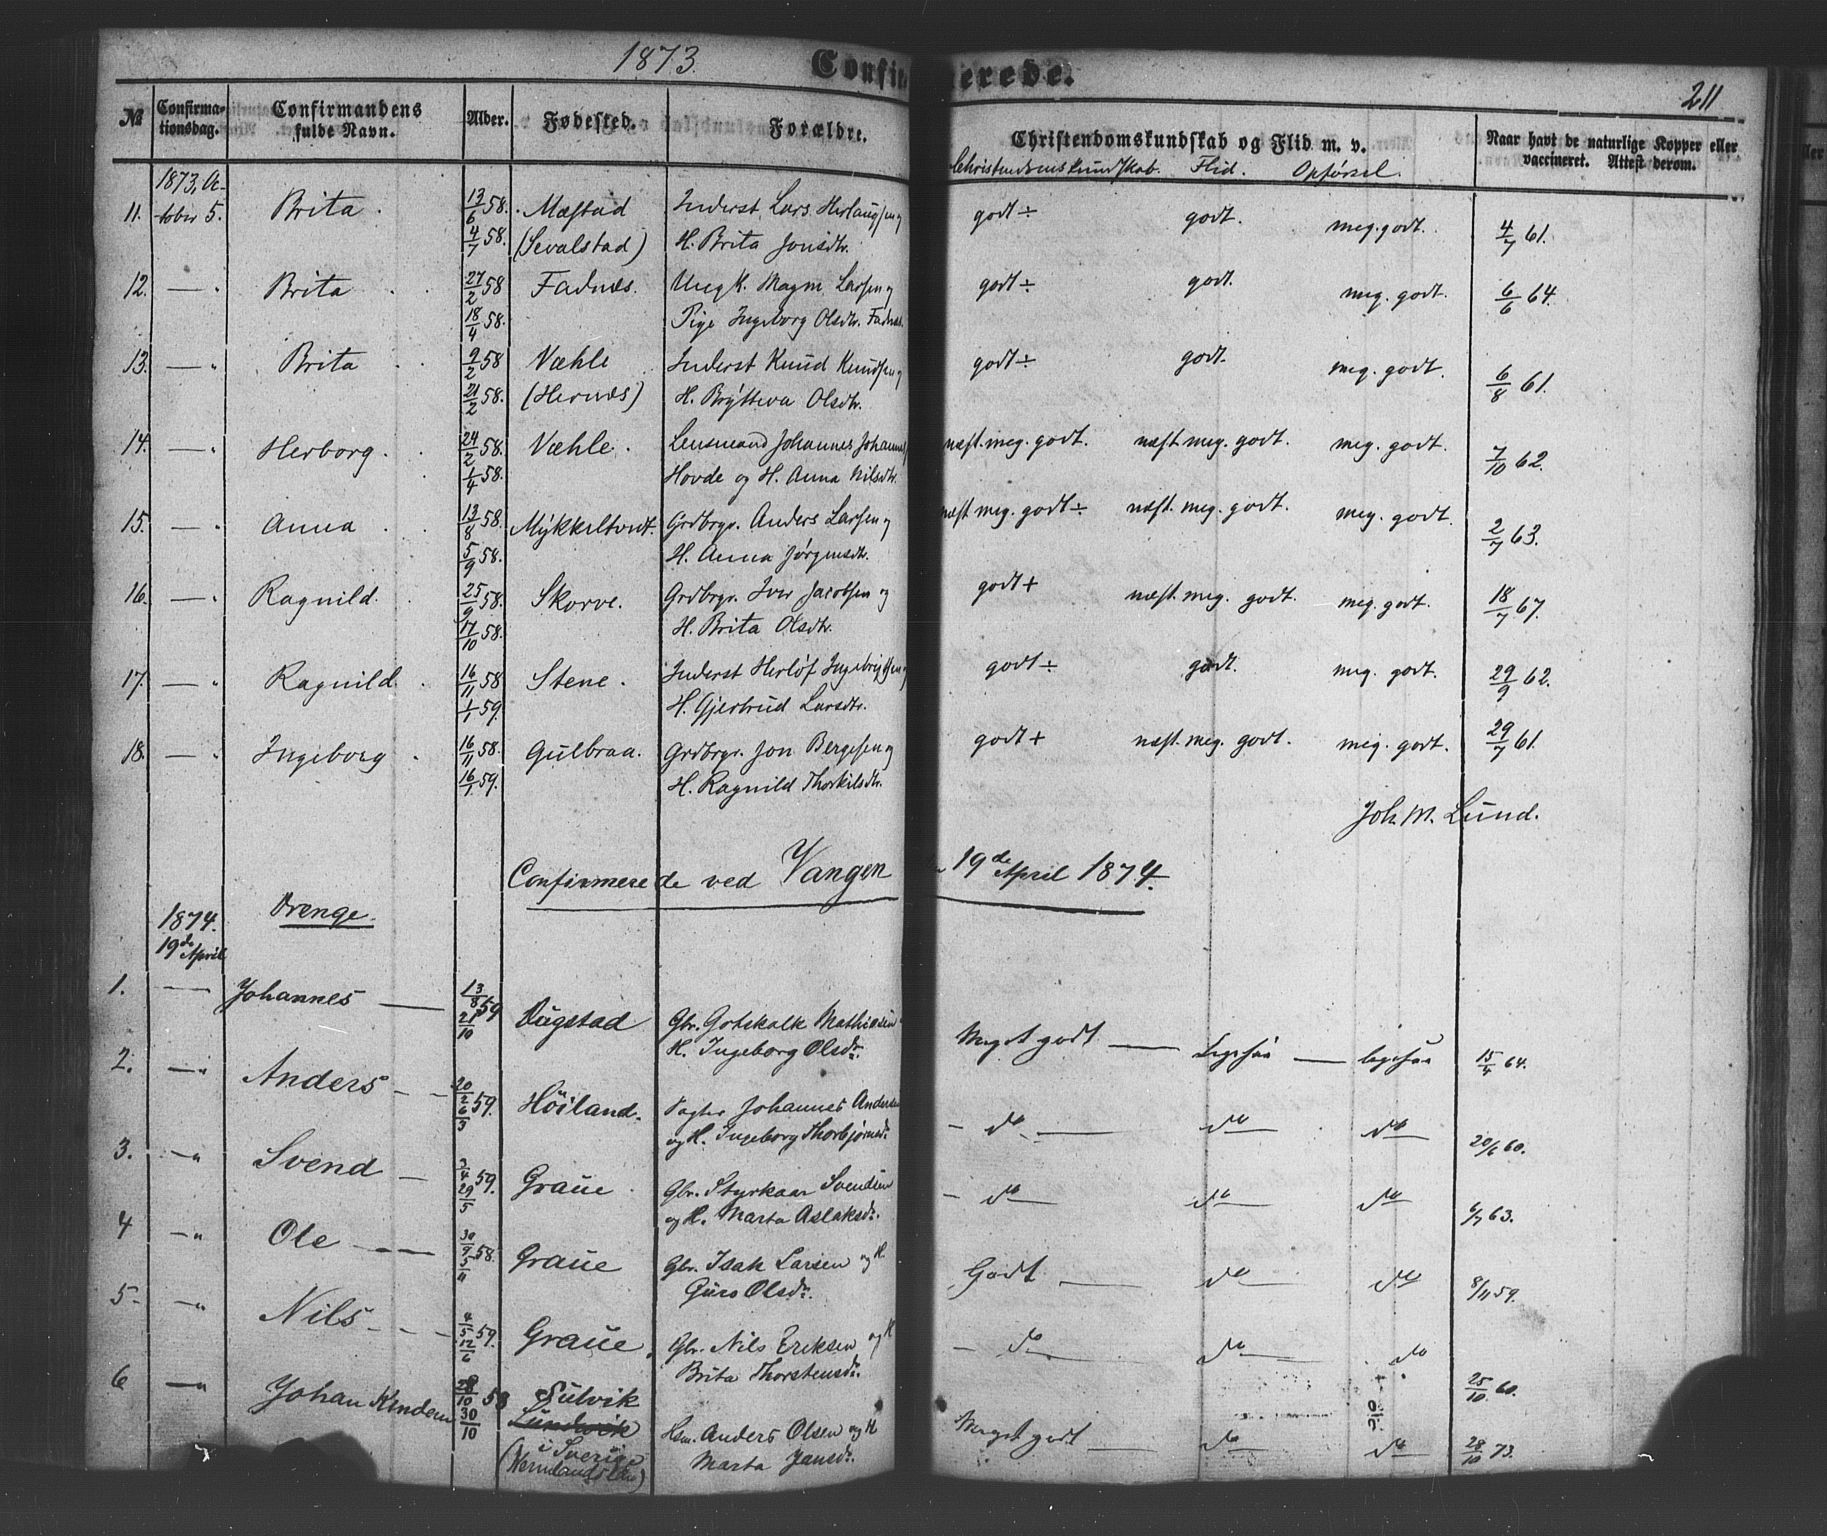 1873. Confirmerede. 211
№ Confirmationsdag. Confirmandens fulde Navn. Alder. Fødested. Forældre. Christendomskundskab og Flid m. v. Naar havt de naturlige Kopper eller vaccineret. Attest derom.
Christendomskundskab. Flid. Opførsel.
1873, Oc-
11. tober 5. Brita. 13/6 58. Mæstad Inderst Lars Herlaugsen og godt ÷ godt. meg. godt. 4/7 61.
4/7 58. (Sevalstad) H. Brita Jonsdtr.
12. — " Brita 27/2 58 Fadnæs. Ungk. Magne Larsen og godt ÷ godt. meg. godt. 6/6 64.
18/4 58. Pige Ingeborg Olsdtr. Fadnæs.
13. — " Brita 9/2 58 Væhle Inderst Knud Knudsen og godt ÷ godt. meg. godt. 6/8 61.
21/2 58. (Hernæs) H. Brytteva Olsdtr.
14. — " Herborg. 24/2 58. Væhle. Lensmand Johannes Johannes næst. meg. godt. næst. meg. godt. meg. godt. 7/10 62.
1/4 58. Hovde og H. Anna Nilsdtr.
15. — " Anna 13/8 58. Mykkeltvedt. Grdbrgr. Anders Larsen og næst meg. godt ÷ næst. meg. godt. meg. godt. 2/7 63.
5/9 58. H. Anna Jørgensdtr.
16. — " Ragnild. 25/9 58. Skorve. Grdbrgr. Iver Jacobsen og godt + næst. meg. godt. meg. godt. 18/7 67.
17/10 58. H. Brita Olsdtr.
17. — " Ragnild. 16/11 58 Stene. Inderst Herlof Ingebrigtsen og godt ÷ godt. meg. godt. 29/9 62.
1/1 59. H. Gjertrud Larsdtr.
18. — " Ingeborg 16/11 58. Gulbraa. Grdbrgr. Jon Bergesen og godt + næst. meg. godt. meg. godt. 29/7 61.
16/1 59. H. Ragnild Thorkilsdtr.
Joh. M. Lund.
Confirmerede ved Vangen 19de April 1874.
1874. Drenge.
19de April
1. — Johannes — 13/8 59 Dugstad Gbr. Gotskalk Mathiasen Meget godt — Ligesaa — ligesaa 15/4 64.
21/10 H. Ingeborg Olsdr.
2. — " Anders — 20/2 59. Höiland. Pagter Johannes Andersen - do — do do 20/6 60.
6/3 og H. Ingeborg Thorbjørnsdr.
3. — " Svend — 3/4 59. Graue. Gbr. Styrkaar Svendsen - do do do 6/7 63.
29/5 og H. Marta Aslaksdr.
4 — " Ole — — 30/9 58. Graue Gbr. Isak Larsen og H. Godt — do do 8/11 59.
5/11 Guro Olsdr.
5. — " Nils - - - 4/5 59. Graue. Gbr. Nils Eriksen og H - do do do 25/10 60.
12/6 Brita Thorstensdr.
6 — " Johan 28/10 58 Sulvik Hsm. Anders Olsen og H Meget godt — do do 28/10 73.
30/10 Marta Jansdr.
i Sverige